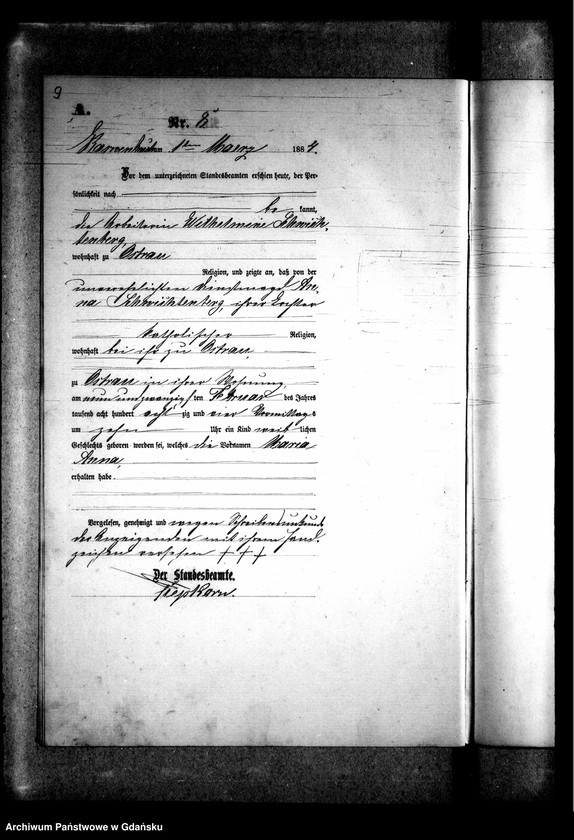 9
A.
Nr. 8
1ten Maerz 1884.
Vor dem unterzeichneten Standesbeamten erschien heute, der Per-
sönlichkeit nach
be kannt,
die Arbeiterin Wilhelmine Schwich-
tenberg,
wohnhaft zu Ostrau
Religion, und zeigte an, daß von der
unverehelichten Dienstmagd An-
na Schwichtenberg, ihrer Tochter
katholischer Religion,
wohnhaft bei ihr zu Ostrau,
zu Ostrau in ihrer Wohnung,
am neun und zwanzig ten Februar des Jahres
tausend acht hundert acht zig und vier Vormittags
um zehn Uhr ein Kind weib lichen
Geschlechts geboren worden sei, welches die Vornamen Maria
Anna,
erhalten habe.
Vorgelesen, genehmigt und wegen Schreibensunkunde
der Anzeigenden mit ihrem Hand-
zeichen versehen + + +
Der Standesbeamte.
Archiwum Państwowe w Gdańsku